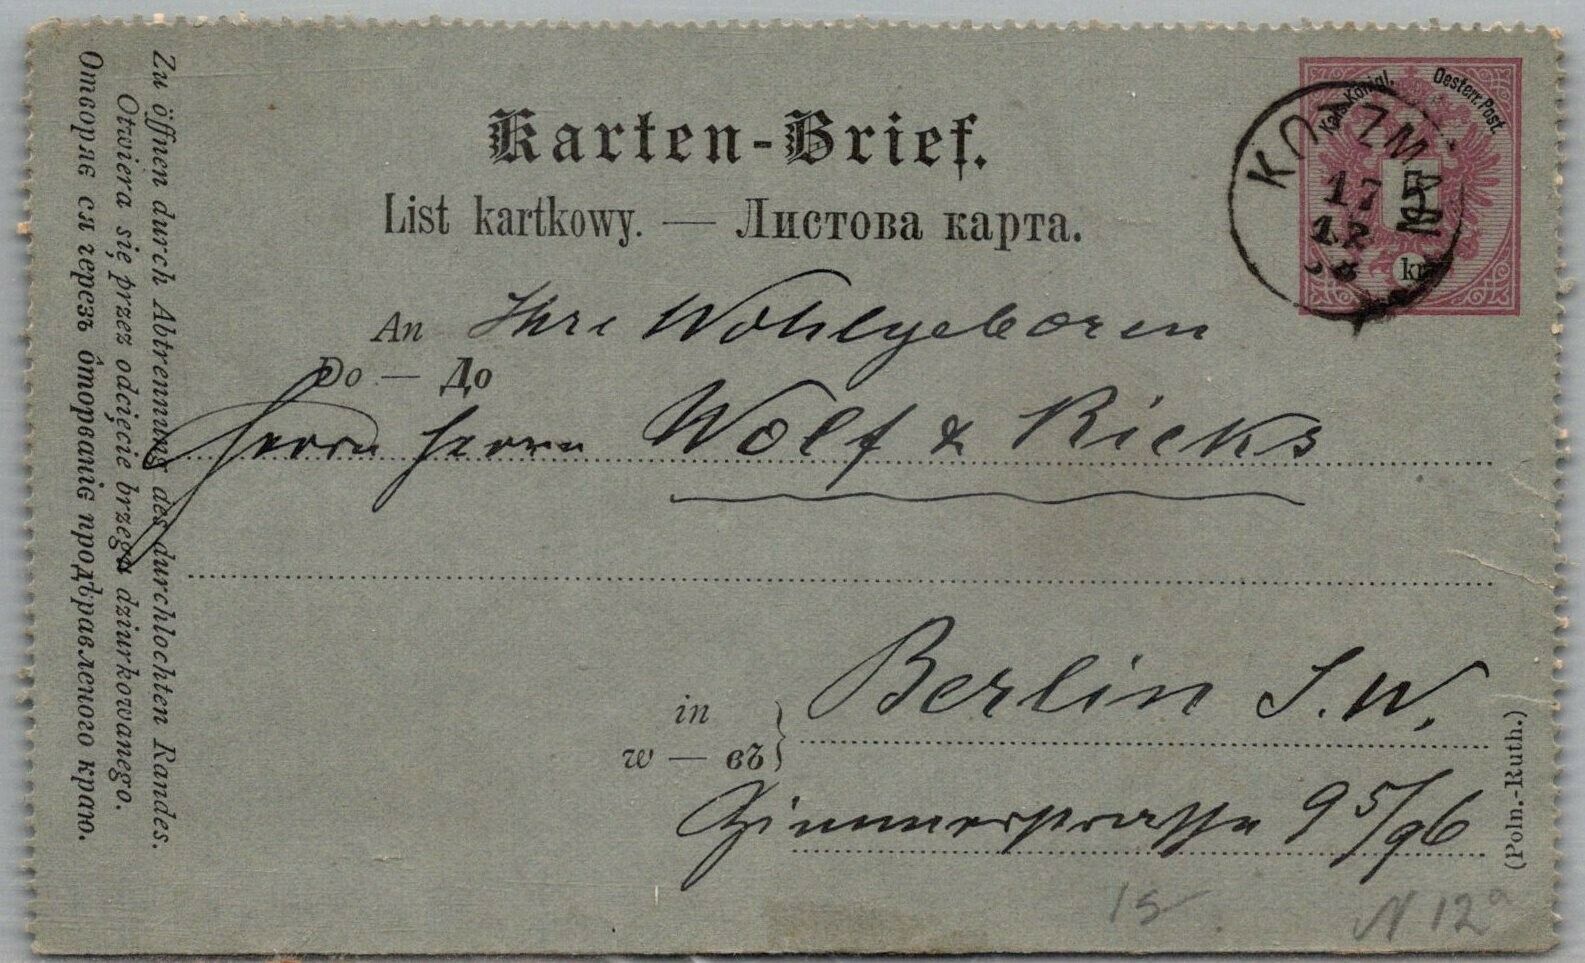 Karten-Brief.
List kartkowy. — Листова карта.
Kais. Königl. Oesterr. Post.
5
kr.
17
12
An Ihre Wohlgeboren
Do — До
Herrn Herrn Wolf & Ricks
in Berlin S.W.
w — въ
Zimmerstrasse 95/96
(Poln.-Ruth.)
Zu öffnen durch Abtrennung des durchlochten Randes.
Otwiera się przez odcięcie brzegu dziurkowanego.
Отворяє ся черезъ ôторванiє продѣравленого краю.
15
N 12a